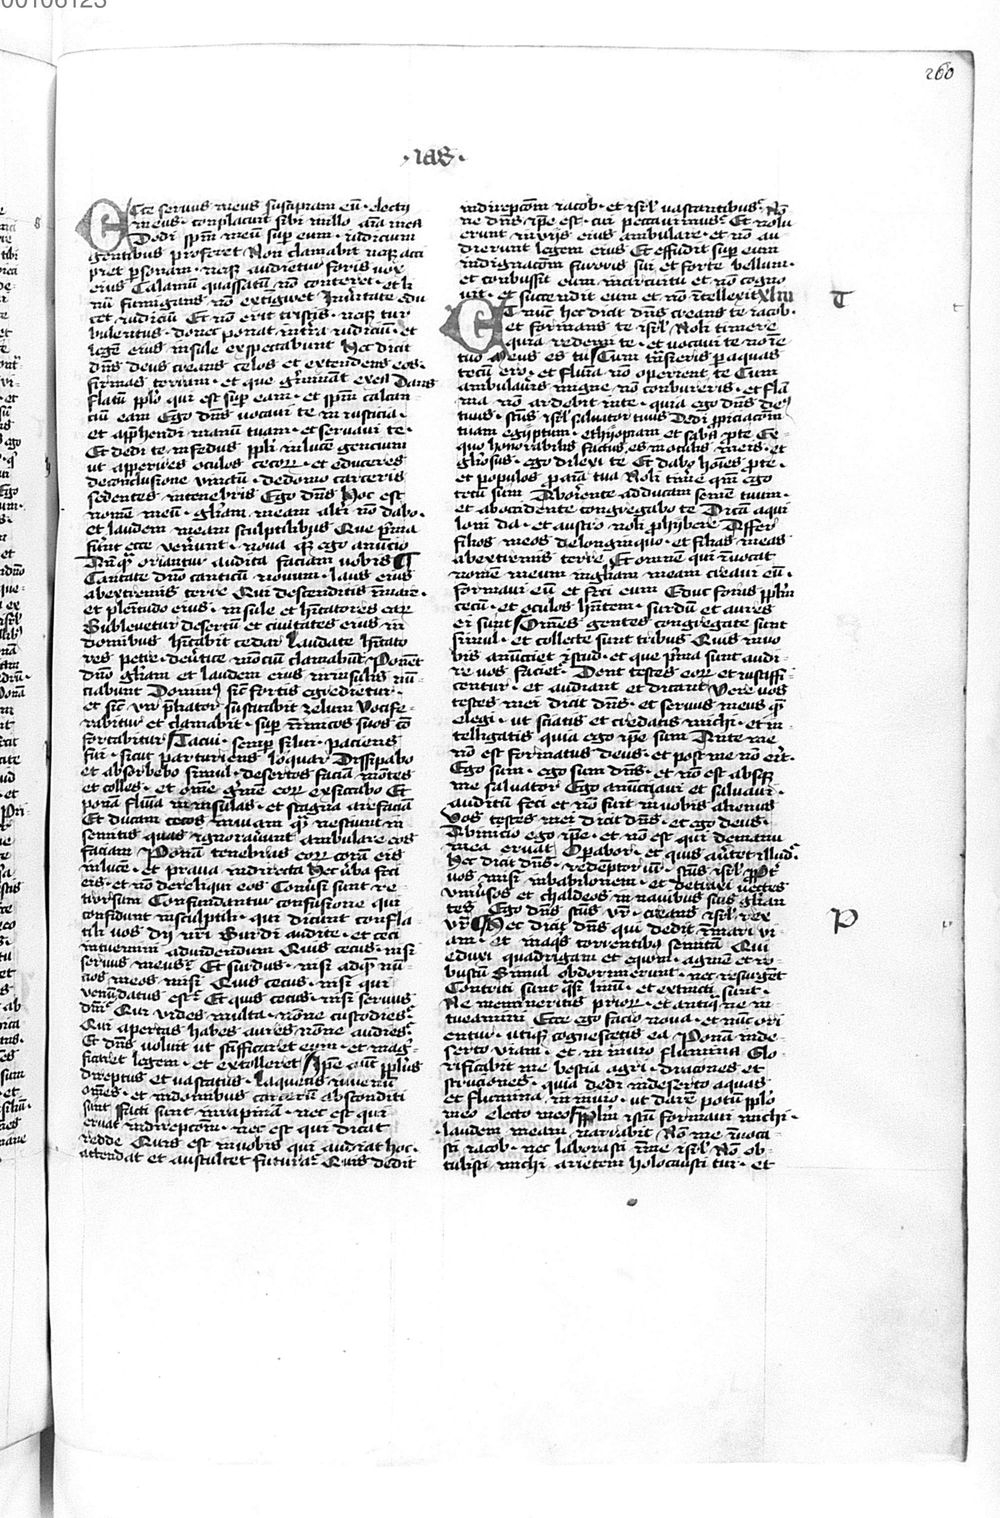 00106123
260
·ias·
Ecce seruus meus suscipiam eū· electꝰ
meus· conplacuit sibi in illo aīa mea
Dedi spm̄ meū sup eum· iudicium
gentibus proferet Non clamabit neqꝫ acci
piet ꝑsonam· neqꝫ audietur foris vox
eius Calamū quassatū nō conteret· et li
nū fumigans nō extīguet In ūitate edu
cet iudiciū Et nō erit tristis· neqꝫ tur
bulentus· donec ponat in tr̄ra iudiciū· et
legē eius insule exspectabunt Hec dicit
dn̄s deus creans celos et extendens eos·
firmans terram· et que gīminant ex ea Dans
flatū pplo qui est sup eam· et spm̄ calcan
ciū eam Ego dn̄s vocaui te in iusticia·
et app̄hendi manū tuam· et seruaui te·
Et dedi te in fedus ppli in lucē gencium
ut apperires oculos cecoꝝ· et educeres
de conclusione vinctū· de domo carceris
sedentes in tenebris Ego dn̄s hoc est
nomē meū· gliam meam alt̓i nō dabo·
et laudem meam sculptilibus Que p̓ma
fūnt ecce venerunt· noua qꝫ ego anūcio
Anteqꝫ oriantur audita faciam vobis
Cantate dno canticū nouum· laus eius
ab extremis terre Qui descenditis in mare·
et plenitudo eius· insule et hītatores eaꝝ
Subleuetur desertū et ciuitates eius in
domibus hītabit cedar Laudate hītato
res petre· de ūtice mōciū clamabūt Ponēt
dn̄o gliam et laudem eius in insulis nū
ciabunt Dominꝰ sic̄ fortis egredietur·
et sic̄ vir p̄liator suscitabit zelum Vocife
rabitur et clamabit· sup inimicos suos cō
fortabitur Tacui· semp silui· paciens
fui· sicut parturiens loquar Dissipabo
et absorbebo simul· desertos faciā mōtes
et colles· et om̄e grmē eoꝝ exsiccabo Et
ponā flūia in insulas· et stagna arefaciā
Et ducam cecos in viam qꝫ nesciunt in
semitis quas ignorauerunt ambulare eos
faciam Ponā tenebras eoꝝ corā eis
in lucē· et praua in directa Hec v̄ba feci
eis· et nō dereliqui eos Conūsi sunt re
trorsum Confundantur confusione qui
confidunt in sculptili· qui dicunt confla
tili vos dii nr̄i Surdi audite· et ceci
intuemini ad videndum Quis cecus· nisi
seruus meus Et surdus· nisi ad qꝫ nū
cios meos misi Quis cecus· nisi qui
venūdatus est Et quis cecus· nisi seruus
dn̄i Qui vides multa· nōne custodies
Qui apertas habes aures nōne audies
Et dn̄s voluit ut sc̄ificaret eum· et magꝰ
ficaret legem· et extolleret Ipse aūt ppl̄us
direptus et vastatus· laqueus iuuenū
om̄es· et in domibus carcerū absconditi
sunt facti sunt in rapinā· nec est qui
eruat in direpcōm· nec est qui dicat
redde Quis est in vobis qui audiat hoc·
attendat et auscultet futura Quis dedit
in direpcōm iacob· et isrl̄ vastantibus Nō
ne dn̄s ip̄e est· cui peccauimus Et nolu
erunt in viis eius ambulare· et nō au
dierunt legem eius Et effudit sup eum
indignacōm furoris sui et forte bellum·
et conbussit eum in circuitu et nō cogno
uit· et succendit eum et nō ītellexit xliii
Et nūc hec dicit dn̄s creans te iacob·
et formans te isrl̄ Noli timere
quia redemi te· et vocaui te noīe
tuo Meus es tu Cum trāsieris p aquas
tecū ero· et flūia nō operient te Cum
ambulaūis in igne nō conbureris· et flā
ma nō ardebit in te· quia ego dn̄s deꝰ
tuus· sc̄us isrl̄ saluator tuus Dedi ppiciacōm
tuam egiptum· ethyopiam et saba p te Ex
quo honorabilis factus es in oculis meis· et
gliosus· ego dilexi te Et dabo hoīes p te·
et populos p aīa tua Noli timē qm̄ ego
tecū sum Ab oriente adducam semē tuum·
et ab occidente congregabo te Dicā aqui
loni da· et austro noli phibere Affer
filios meos de longinquo· et filias meas
ab extremis terre Et omnē qui īuocat
nomē meum in gliam meam creaui eū·
formaui eum et feci eum Educ foras pplm̄
cecū· et oculos hn̄tem· surdū et aures
ei sunt Om̄es gentes congregate sunt
simul· et collecte sunt tribus Quis in vo
bis anūciet istud· et que p̓ma sunt audi
re vos faciet· Dent testes eoꝝ et iustifi
centur· et audiant et dicant Vere vos
testes mei dicit dn̄s· et seruus meus qꝫ
elegi· ut sciatis et credatis michi· et in
telligatis quia ego ip̄e sum Ante me
nō est formatus deus· et post me nō erit·
Ego sum· ego sum dn̄s· et nō est absqꝫ
me saluator Ego anūciaui et saluaui·
auditū feci et nō fuit in vobis alienus
Vos testes mei dicit dn̄s· et ego deus·
Ab inicio ego ip̄e· et nō est qui de manu
mea eruat Opabor· et quis au̓tet illud
Hec dicit dn̄s· redēptor vr̄· sc̄us isrl̄ Prop̄t
vos misi in babilonem· et detraxi vectes
vniūsos et chaldeos in nauibus suis glian
tes Ego dn̄s sc̄us vr̄· creans isrl̄ rex
vr̄ Hec dicit dn̄s qui dedit in mari vi
am· et in aqis torrentibus semitā Qui
eduxi quadrigam et equm· agmē et ro
bustū Simul obdormierunt· nec resurgēt
Contriti sunt qsi linū· et extincti sunt·
Ne memineritis prioꝝ· et antiqꝫ ne in
tueamini Ecce ego facio noua· et nūc ori
entur· utiqꝫ cognoscetis ea Ponā in de
serto viam· et in inuio flumina Glo
rificabit me bestia agri· dracones et
struciones· quia dedi in deserto aquas
et flumina in inuio· ut darē potū pplo
meo electo meo Pplm̄ istū formaui michi·
laudem meam narrabit Nō me īuoca
sti iacob· nec laborasti in me isrl̄ Nō ob
tulisti michi arietem holocausti tui· et
T
P